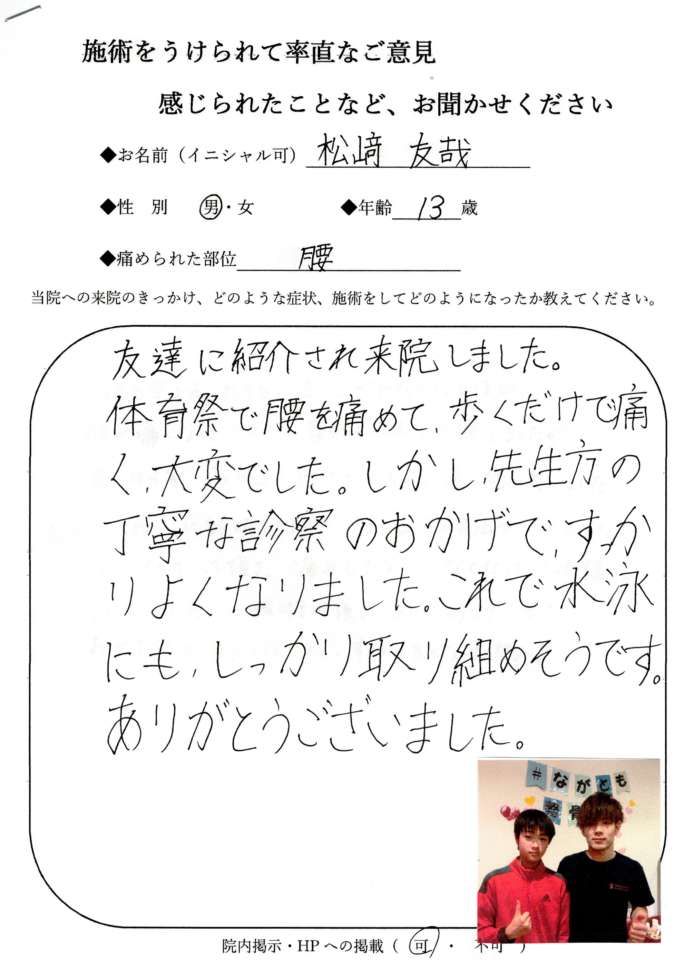 施術をうけられて率直なご意見
感じられたことなど、お聞かせください
◆お名前（イニシャル可） 松﨑 友哉
◆性 別 男・女 ◆年齢 13 歳
◆痛められた部位 腰
当院への来院のきっかけ、どのような症状、施術をしてどのようになったか教えてください。
友達に紹介され来院しました。
体育祭で腰を痛めて、歩くだけで痛
く、大変でした。しかし、先生方の
丁寧な診察のおかげで、すっか
りよくなりました。これで水泳
にも、しっかり取り組めそうです。
ありがとうございました。
#ながとも
整骨
院内掲示・HPへの掲載（ 可 ・ 不可 ）